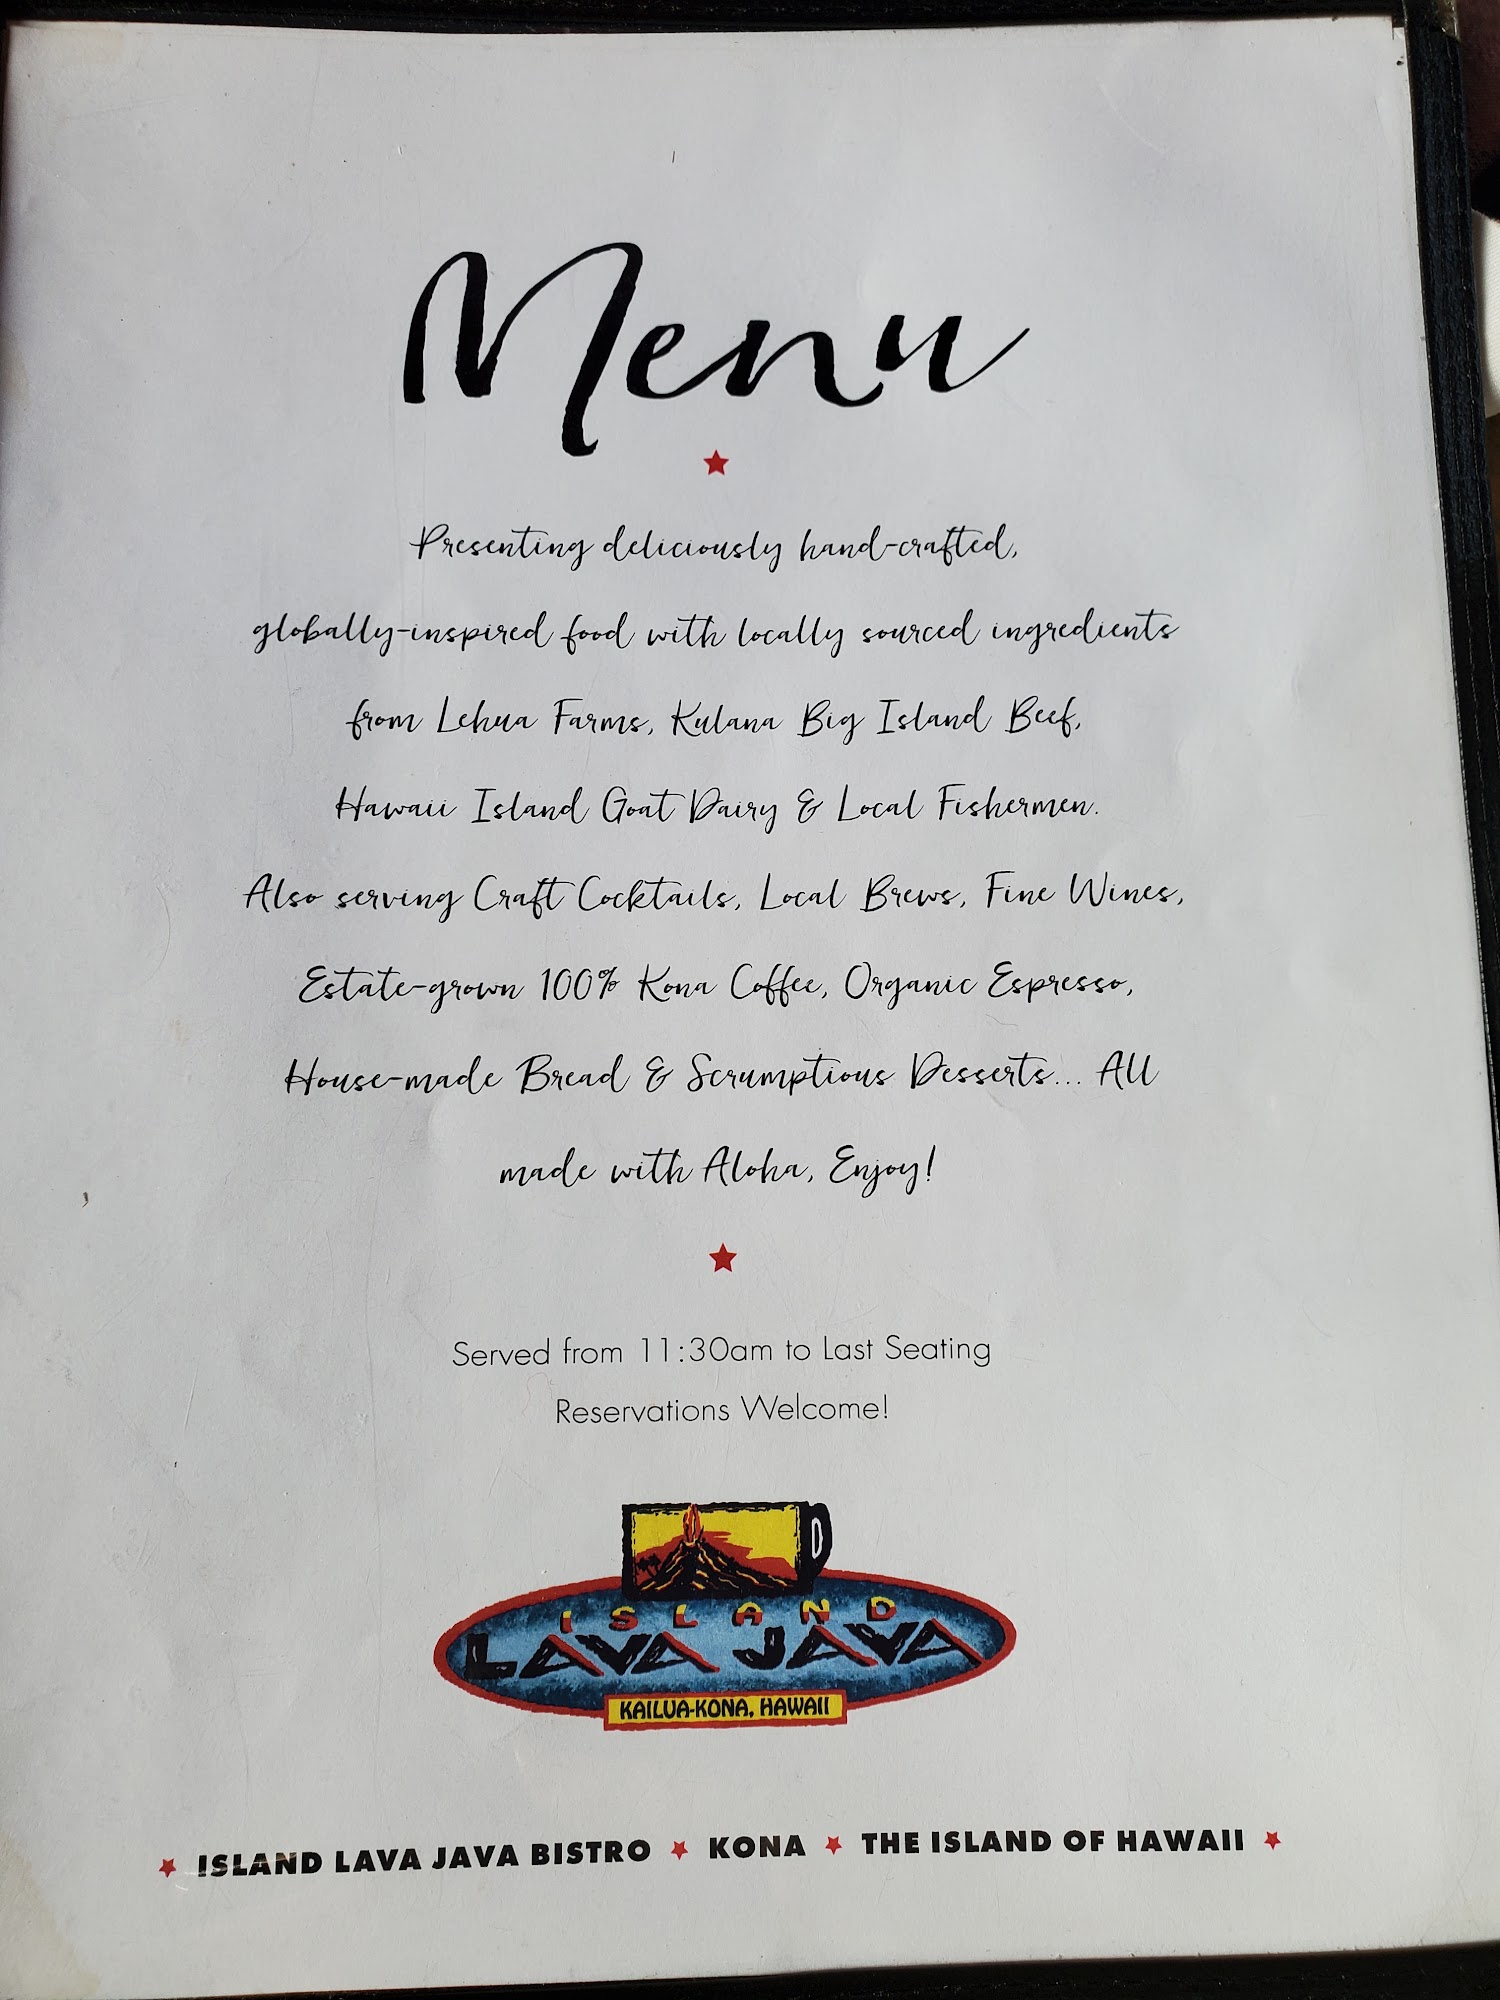 Menu
Presenting deliciously hand-crafted,
globally-inspired food with locally sourced ingredients
from Lehua Farms, Kulana Big Island Beef,
Hawaii Island Goat Dairy & Local Fishermen.
Also serving Craft Cocktails, Local Brews, Fine Wines,
Estate-grown 100% Kona Coffee, Organic Espresso,
House-made Bread & Scrumptious Desserts... All
made with Aloha, Enjoy!
Served from 11:30am to Last Seating
Reservations Welcome!
ISLAND
LAVA JAVA
KAILUA-KONA, HAWAII
ISLAND LAVA JAVA BISTRO ★ KONA ★ THE ISLAND OF HAWAII